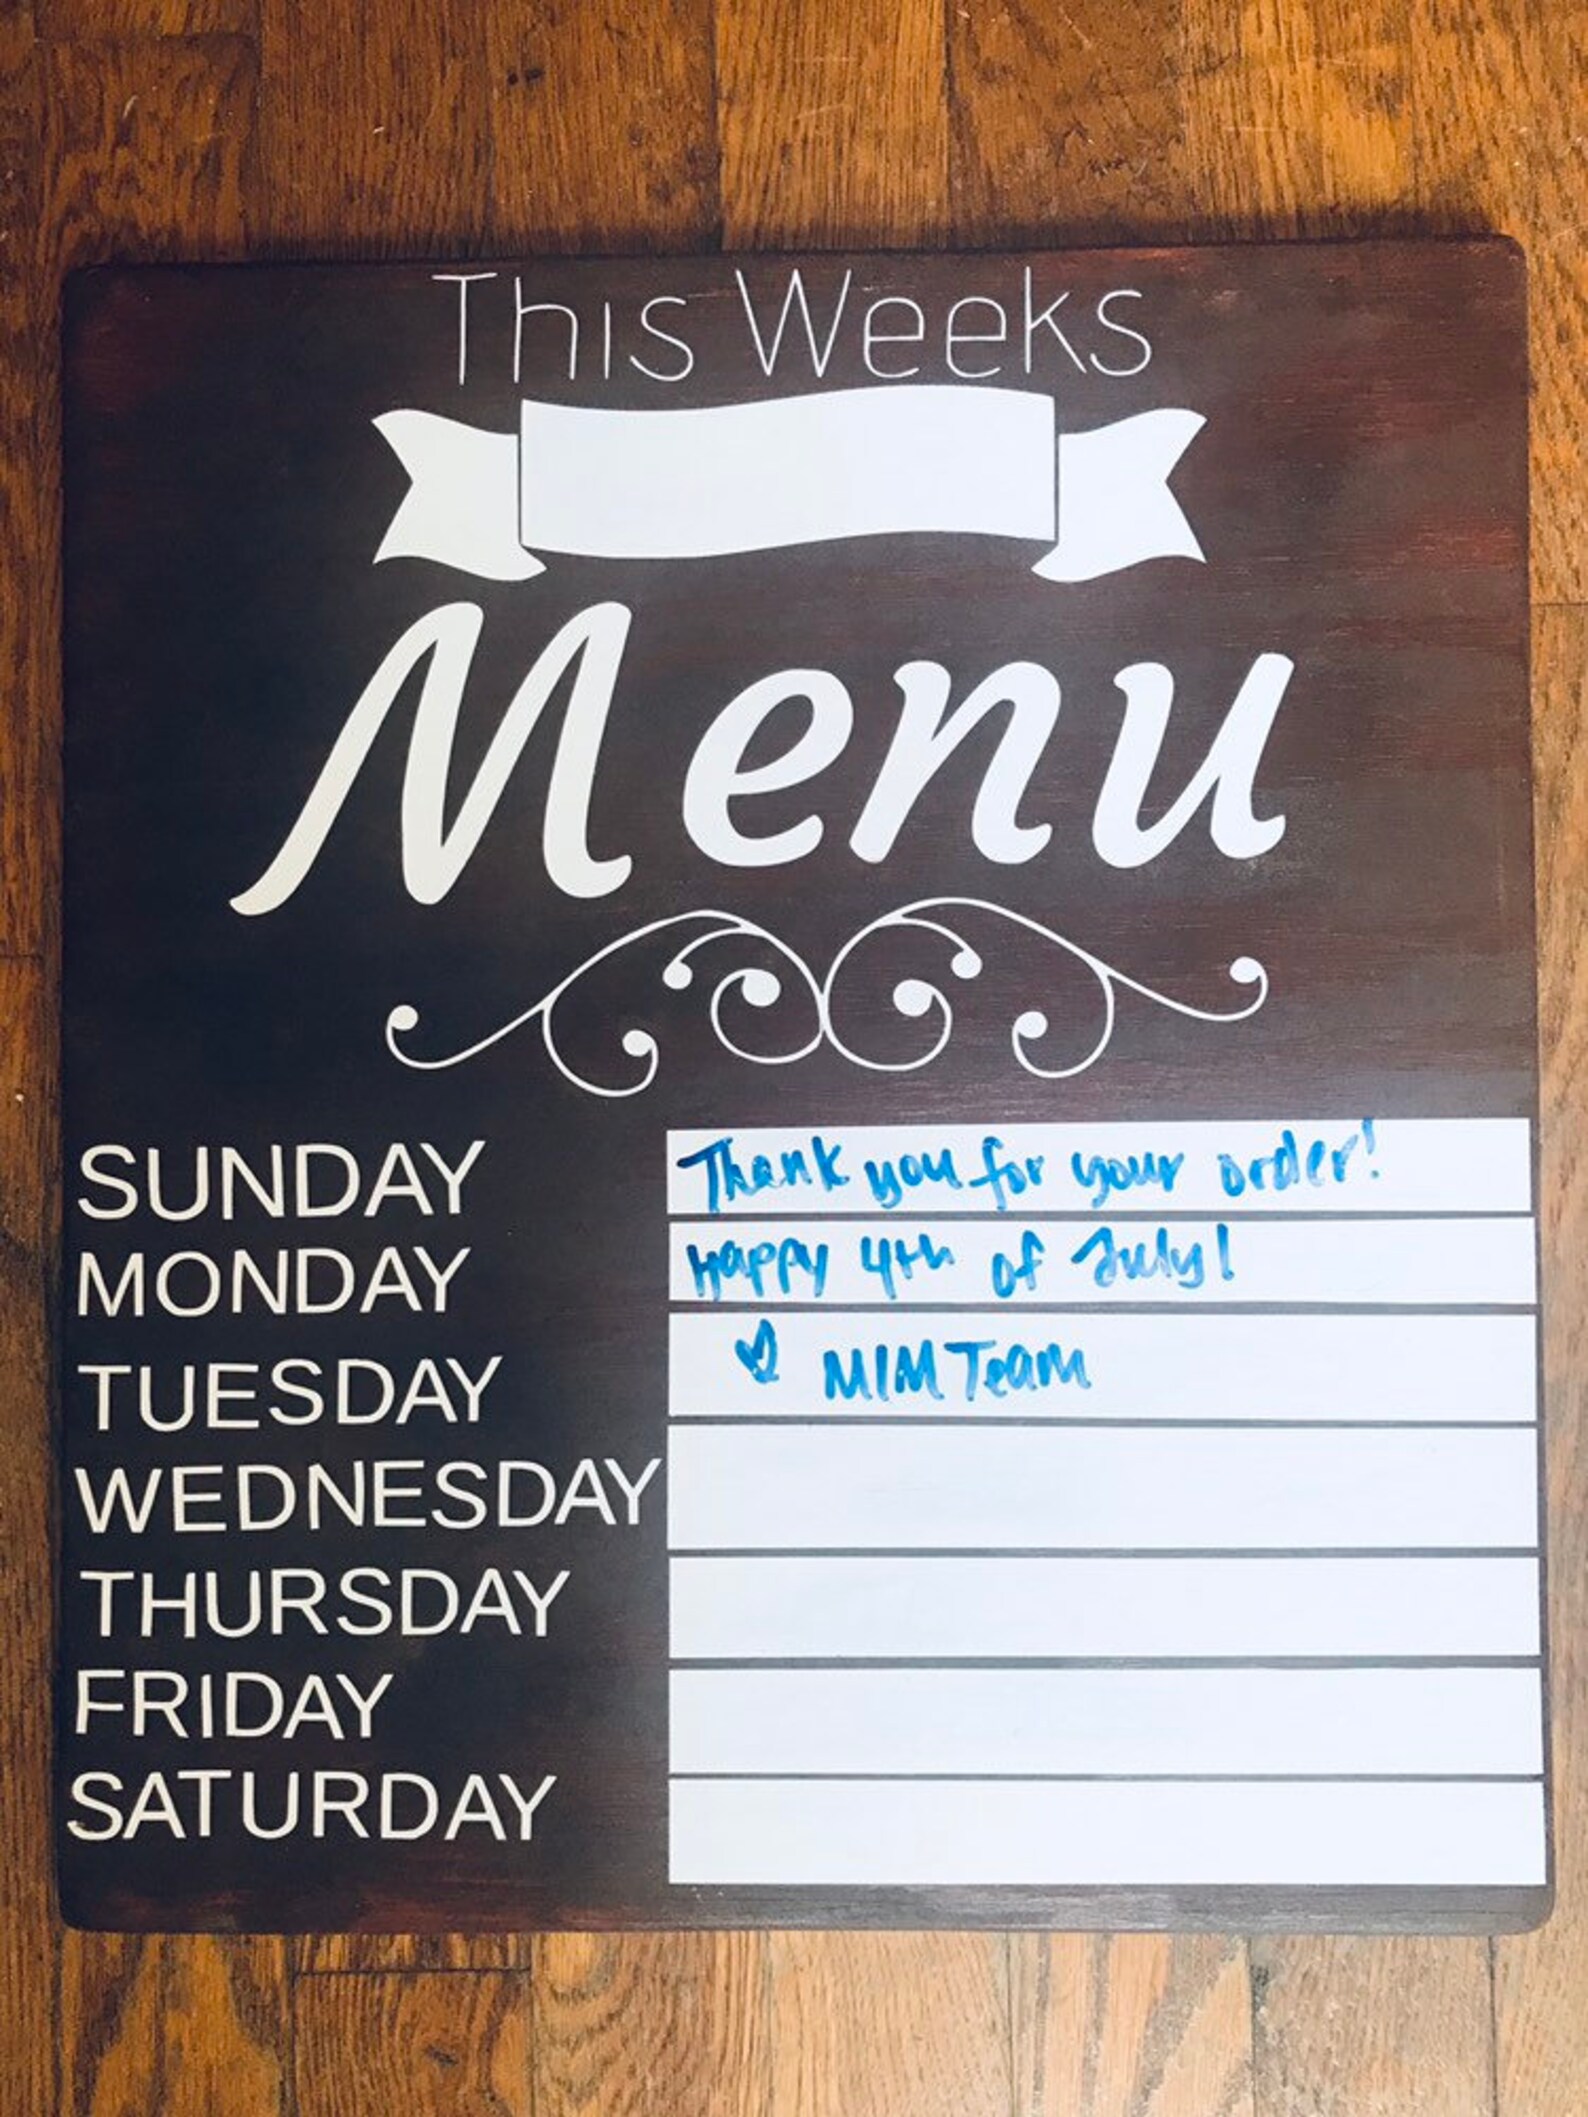 This Weeks
Menu
SUNDAY Thank you for your order!
MONDAY Happy 4th of July!
TUESDAY ♡ MIM Team
WEDNESDAY
THURSDAY
FRIDAY
SATURDAY